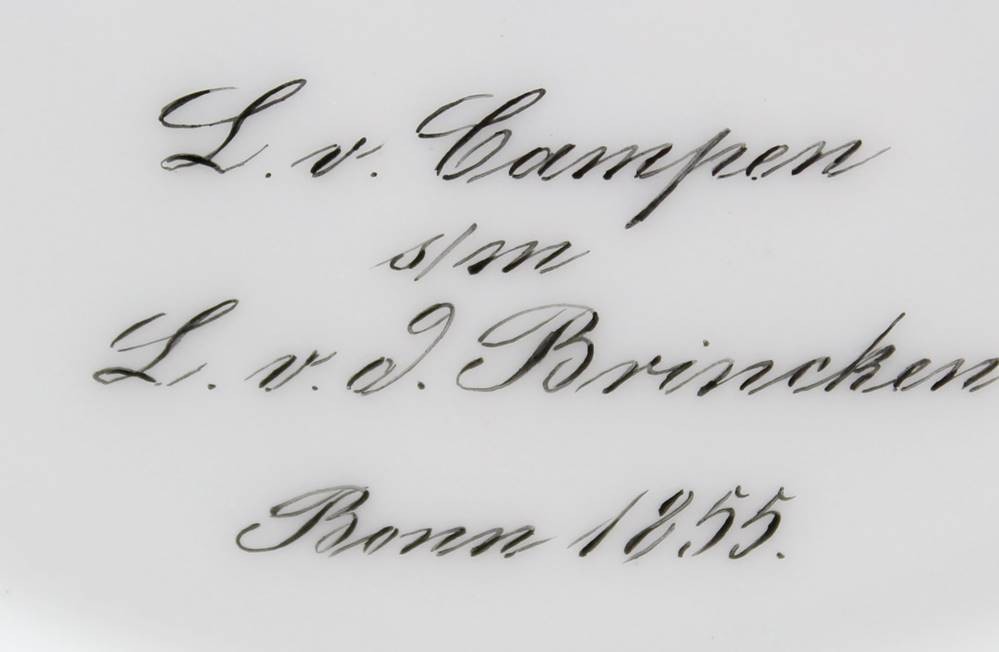 L. v. Campen
s/m
L. v. d. Brincken
Bonn 1855.